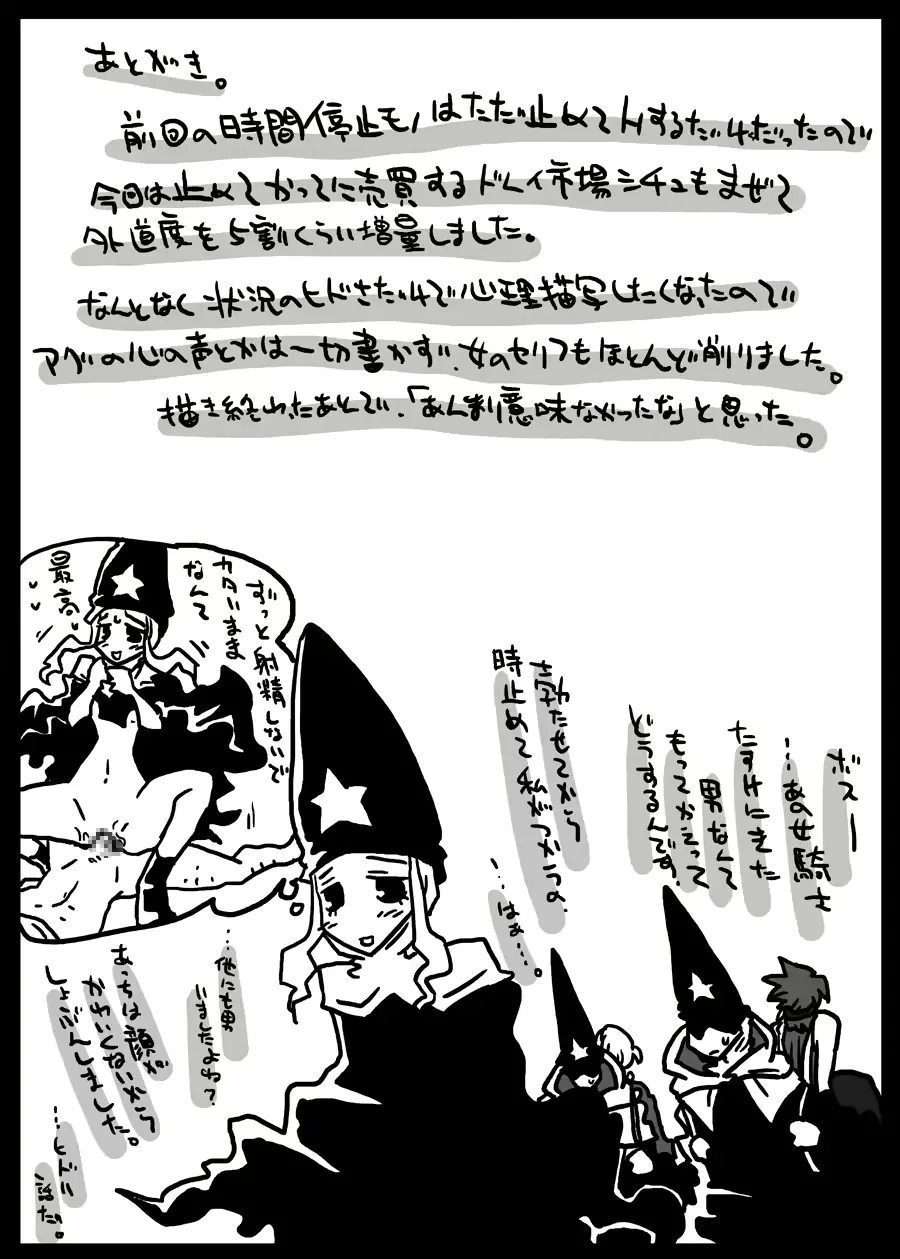 あとがき。
前回の時間停止モノはただ止めてHするだけだったので
今回は止めてかってに売買するドレイ市場シチュもまぜて
外道度を5割くらい増量しました。
なんとなく状況のヒドさだけで心理描写したくなったので
アゲの心の声とかは一切書かず、女のセリフもほとんど削りました。
描き終わったあとで、「あんま意味なかったな」と思った。
ボスー
…あの女騎士
たすけにきた
男なんて
もってかえって
どうするんです。
勃たせてから
時止めて私がつかうの。
…はぁ…。
ずっと射精しないで
カタいまま
なんて
最高
…他にも男
いましたよね?
あっちは顔が
かわいくないから
しょぶんしました。
…ヒドい
話だ。